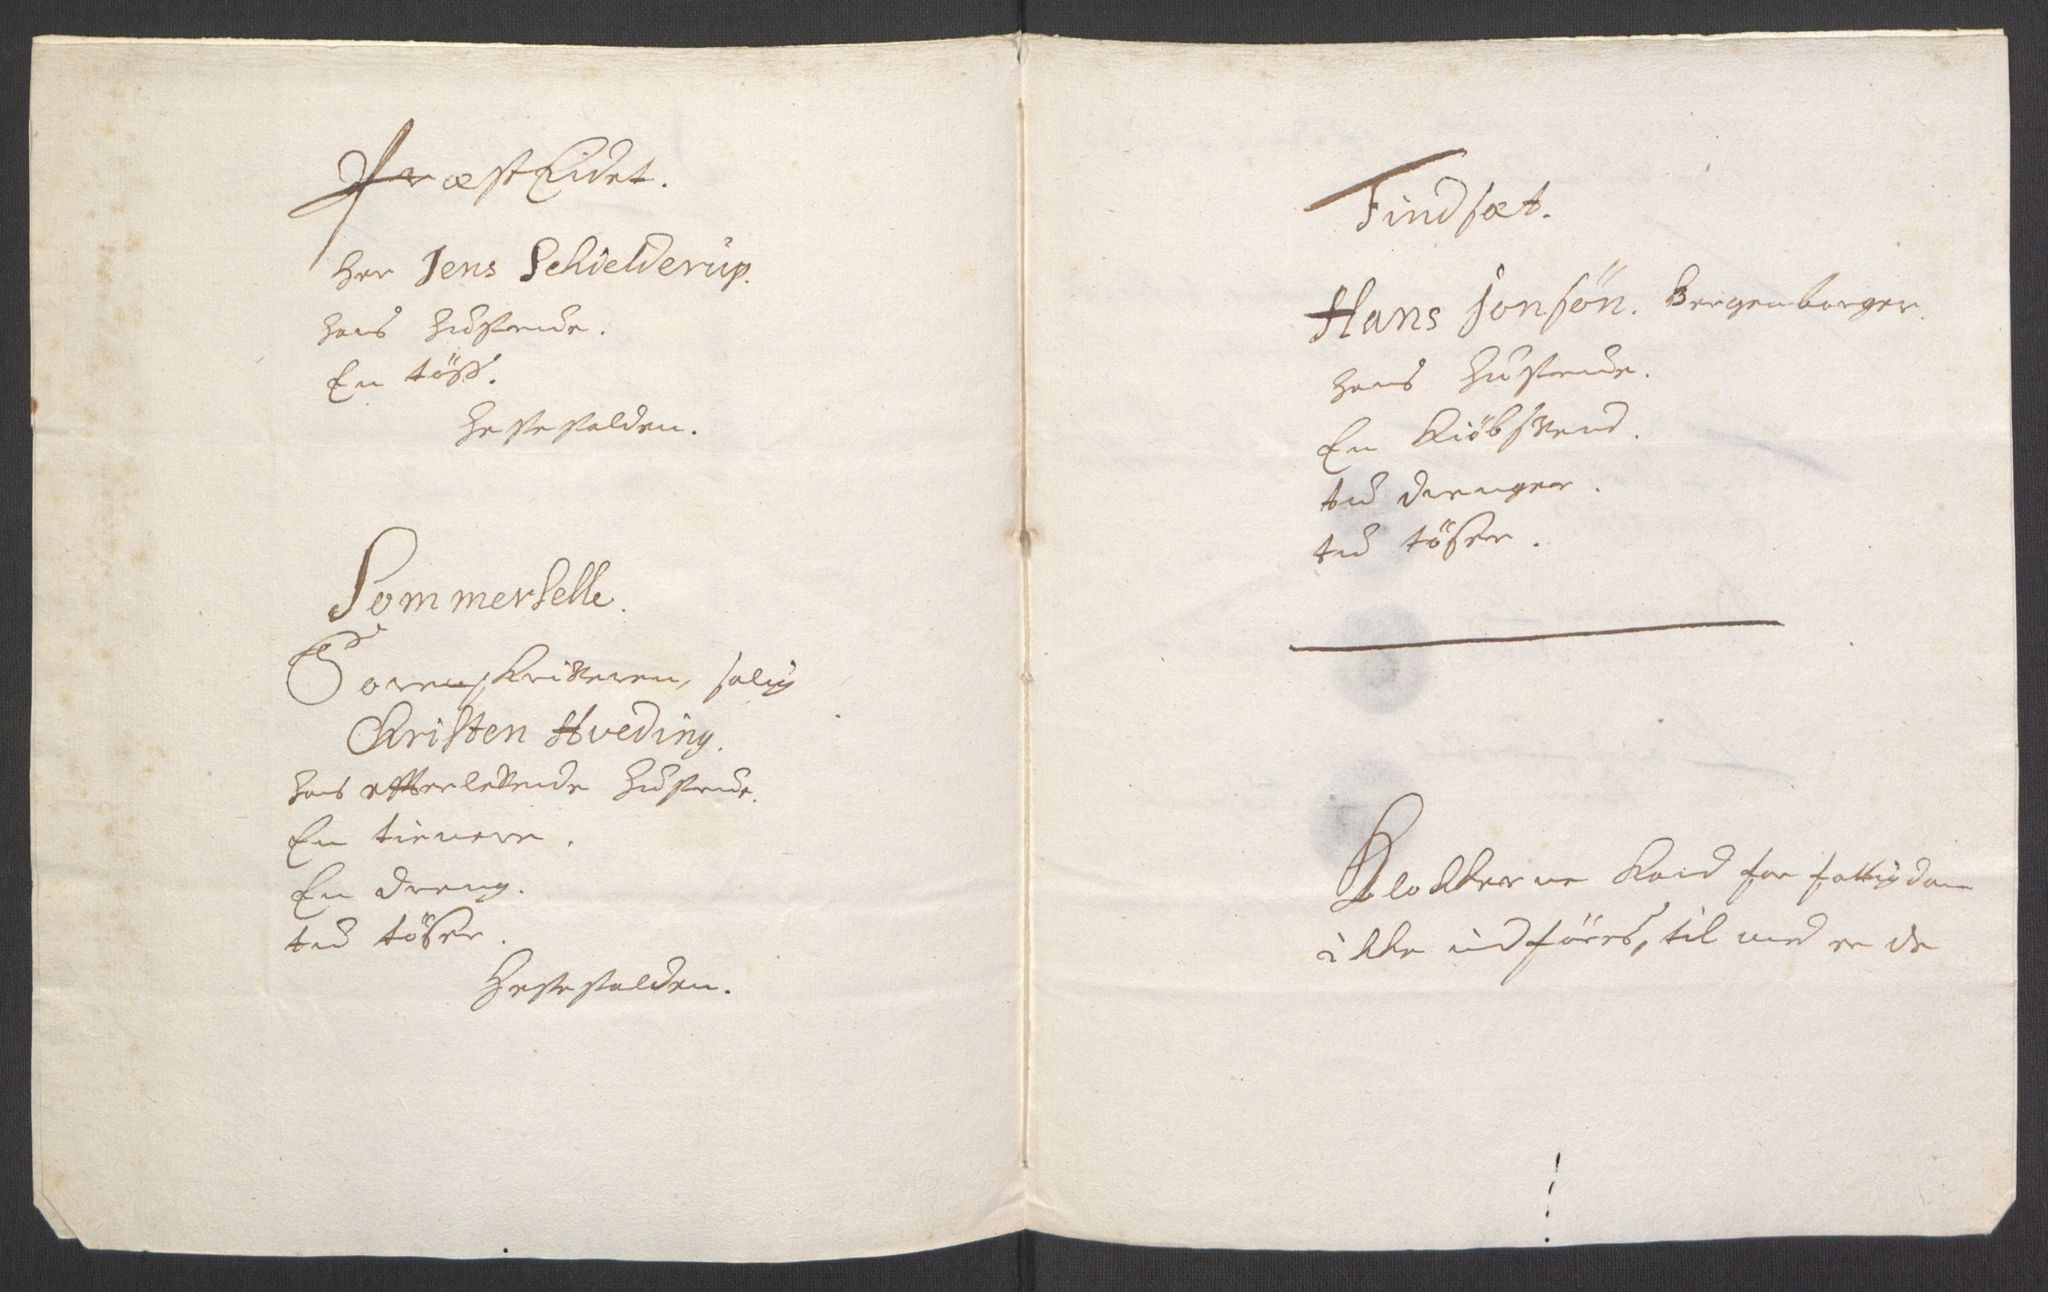 PræstEidet.
Her Jens Schielderup.
hans hustrue.
En töss.
Hestestalden.
Sommerselle.
Sorenskriveren, salig
Christen Hveding.
hans efterlevende hustrue.
En tienere.
En dreng.
tu töser.
Hestestalden.
Findsæt.
Hans Jonsön. Bergenborger.
hans hustrue.
En Kiöbsvend.
tu drenger.
tu töser.
Klokkerne Kand for fattigdom
ikke indföres, til med er de